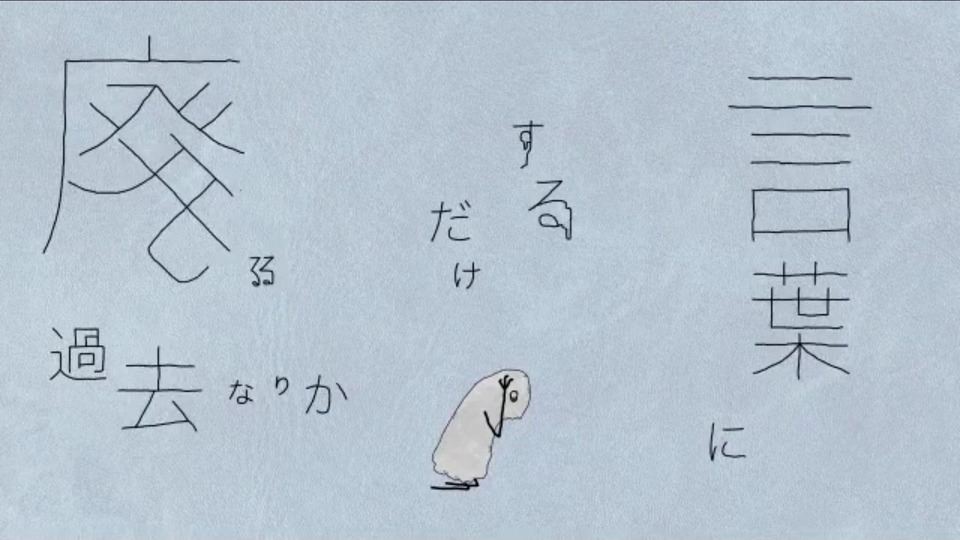 言葉に
する
だけ
廃
過去なりか